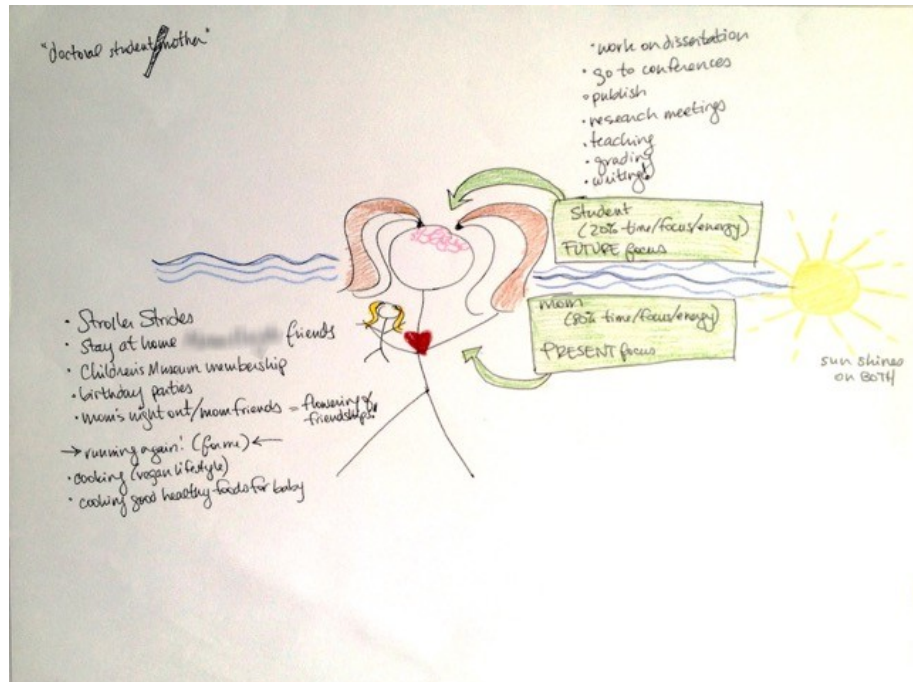 "doctoral student/mother"
• work on dissertation
• go to conferences
• publish
• research meetings
• teaching
• grading
• writing
Student
(20% time/focus/energy)
FUTURE focus
mom
(80% time/focus/energy)
PRESENT focus
sun shines
on BOTH
• Stroller Strides
• Stay at home friends
• Children's Museum membership
• birthday parties
• mom's night out/mom friends = flowering of
friendships!
→ running again! (for me) ←
• cooking (vegan lifestyle)
• cooking good healthy foods for baby